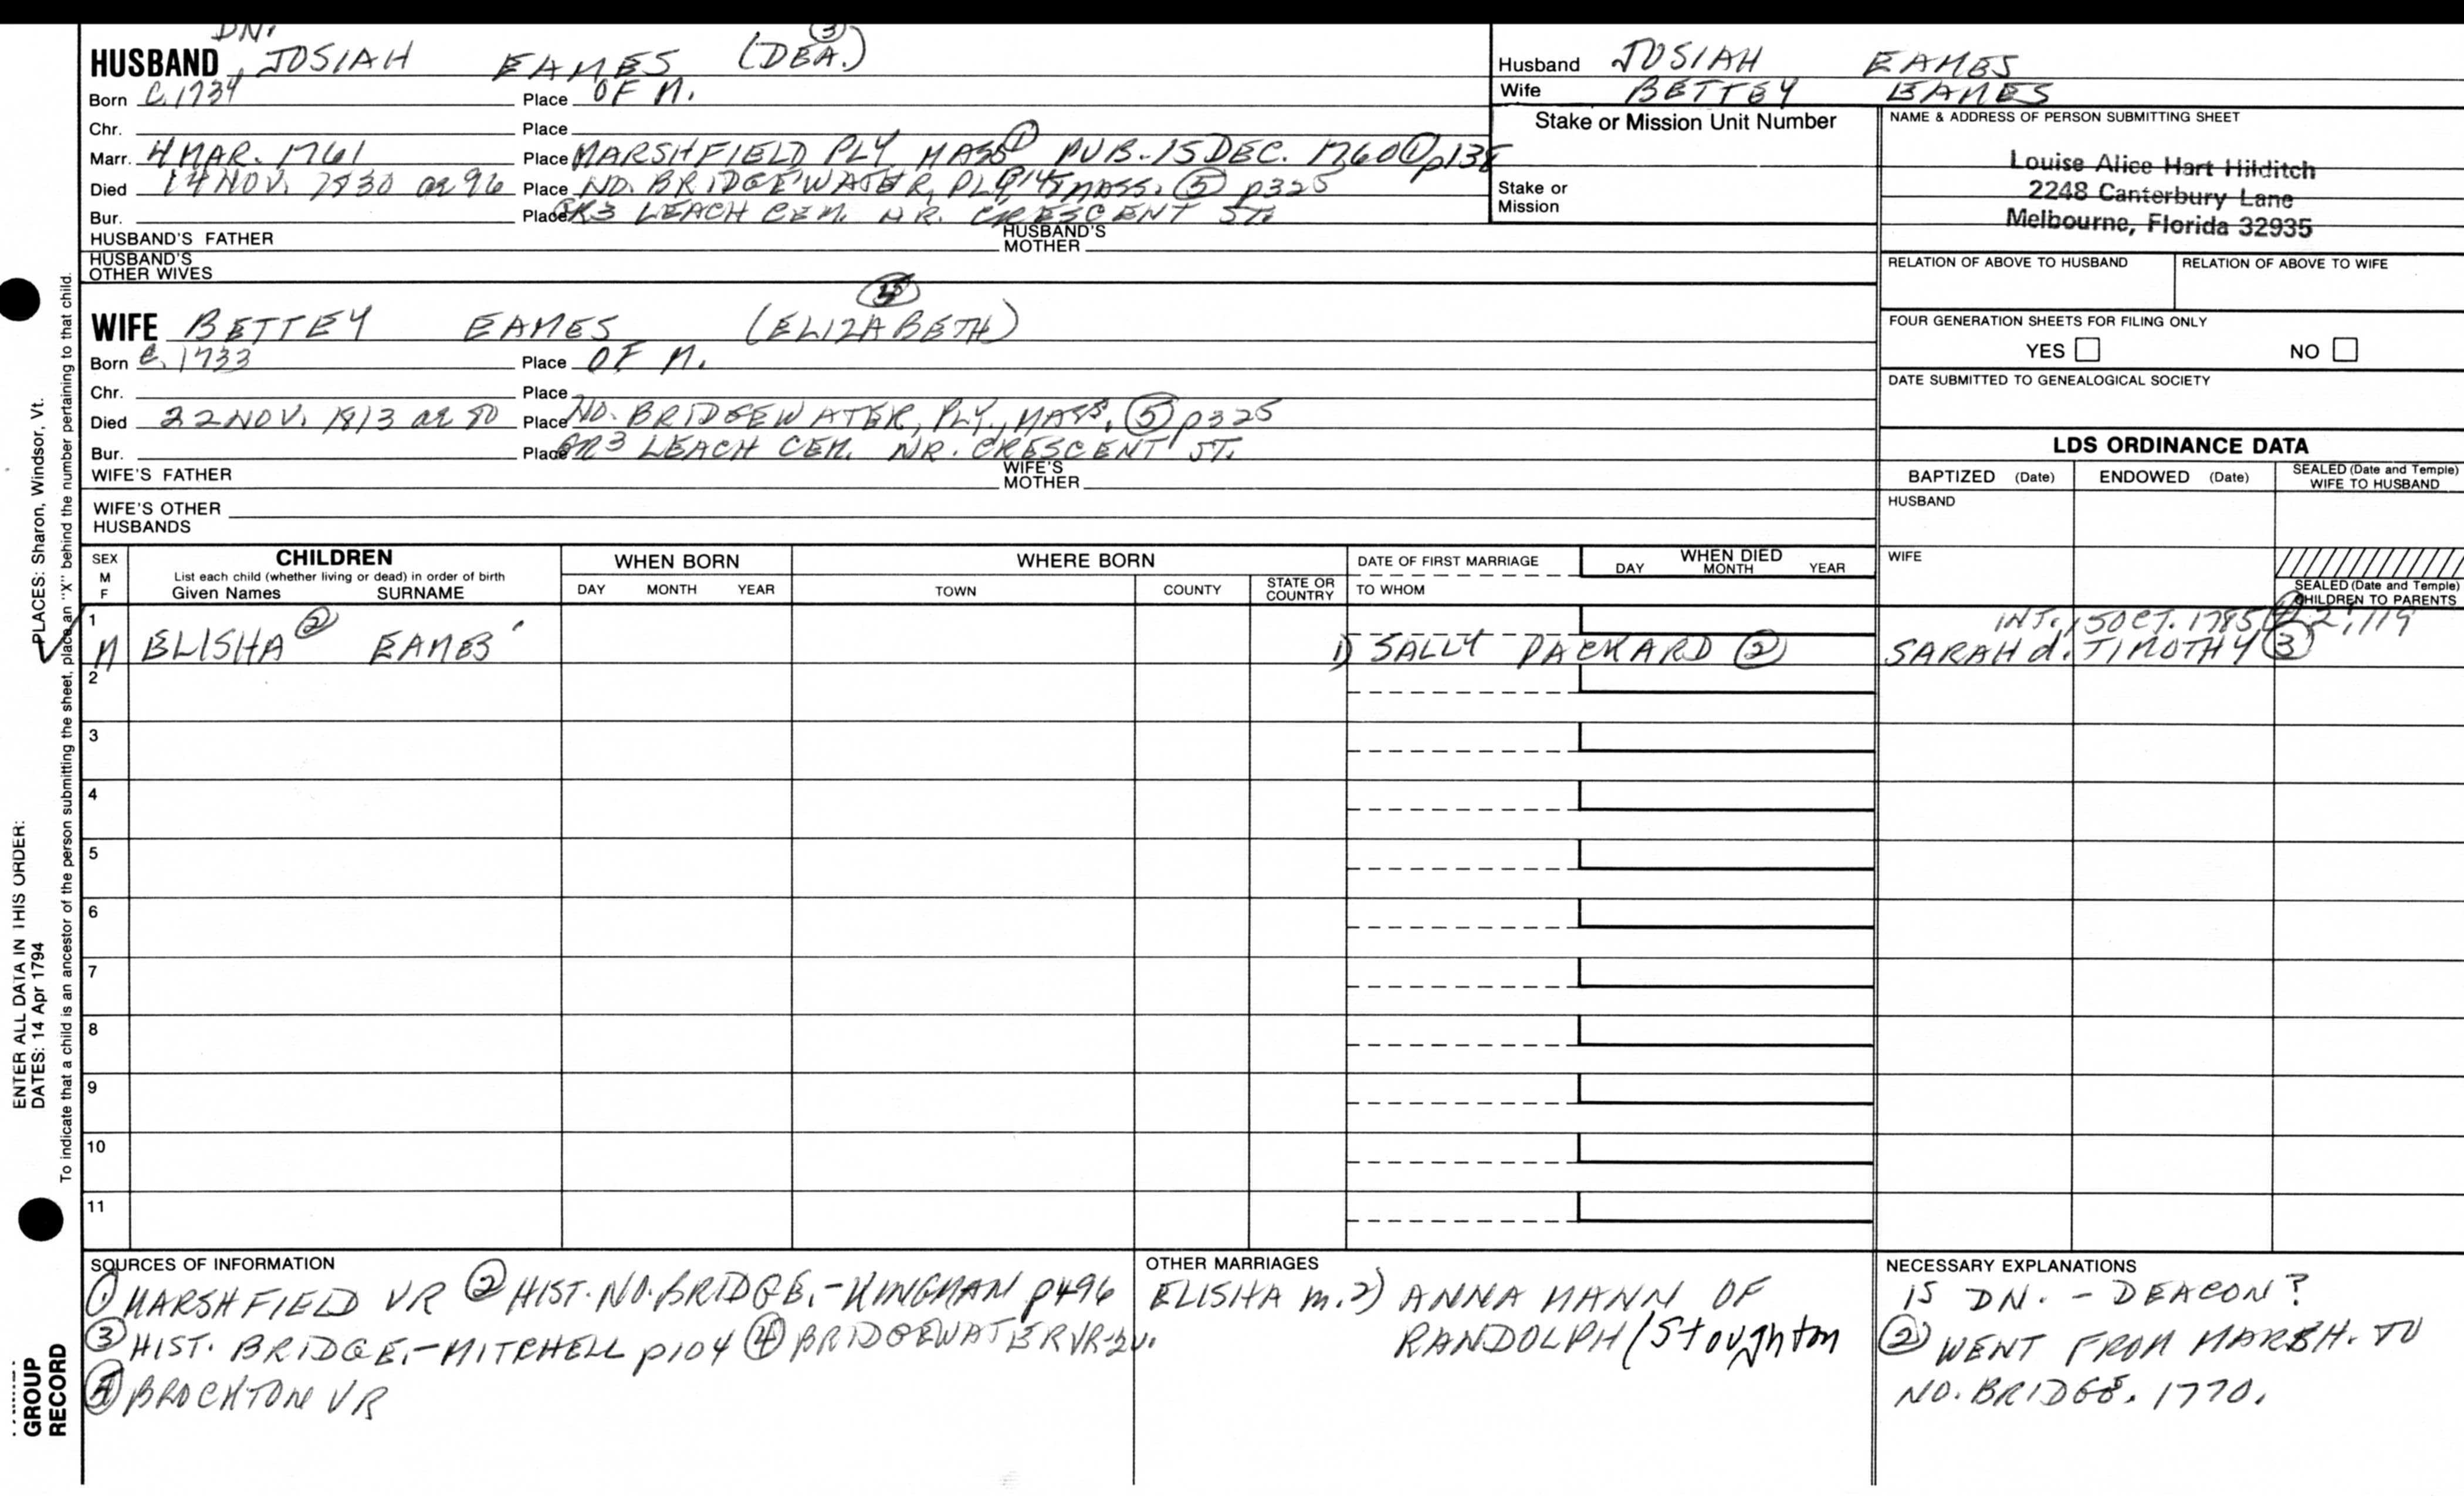 DN. (3)
HUSBAND JOSIAH EAMES (DEA.)
Born C. 1734 Place OF M.
Chr. Place
Marr. 4 MAR. 1761 Place MARSHFIELD PLY MASS ① PUB. 15 DEC. 1760 ① p138
Died 14 NOV. 1830 ae 96 Place NO. BRIDGEWATER, PLY MASS. ⑤ p325
Bur. Place GR3 LEACH CEM. NR. CRESCENT ST.
HUSBAND'S FATHER HUSBAND'S MOTHER
HUSBAND'S OTHER WIVES
WIFE BETTEY EAMES (ELIZABETH)
Born C. 1733 Place OF M.
Chr. Place
Died 22 NOV. 1813 ae 80 Place NO. BRIDGEWATER, PLY., MASS. ⑤ p325
Bur. Place GR3 LEACH CEM. NR. CRESCENT ST.
WIFE'S FATHER WIFE'S MOTHER
WIFE'S OTHER HUSBANDS
Husband JOSIAH EAMES
Wife BETTEY EAMES
Stake or Mission Unit Number
Stake or Mission
NAME & ADDRESS OF PERSON SUBMITTING SHEET
Louise Alice Hart Hilditch
2248 Canterbury Lane
Melbourne, Florida 32935
RELATION OF ABOVE TO HUSBAND RELATION OF ABOVE TO WIFE
FOUR GENERATION SHEETS FOR FILING ONLY
YES NO
DATE SUBMITTED TO GENEALOGICAL SOCIETY
LDS ORDINANCE DATA
BAPTIZED (Date) ENDOWED (Date) SEALED (Date and Temple) WIFE TO HUSBAND
HUSBAND
WIFE
SEALED (Date and Temple) CHILDREN TO PARENTS
SEX M F CHILDREN WHEN BORN WHERE BORN DATE OF FIRST MARRIAGE WHEN DIED
List each child (whether living or dead) in order of birth
Given Names SURNAME DAY MONTH YEAR TOWN COUNTY STATE OR COUNTRY TO WHOM DAY MONTH YEAR
1 INT. 15 OCT. 1785 ④ 2:119
M ELISHA ② EAMES 1) SALLY PACKARD ② SARAH d. TIMOTHY ③
2
3
4
5
6
7
8
9
10
11
SOURCES OF INFORMATION
① MARSHFIELD VR ② HIST. NO. BRIDGE.-KINGMAN p496
③ HIST. BRIDGE.-MITCHELL p104 ④ BRIDGEWATER VR-2v.
⑤ BROCKTON VR
OTHER MARRIAGES
ELISHA m. 2) ANNA MANN OF
RANDOLPH/Stoughton
NECESSARY EXPLANATIONS
IS DN. - DEACON?
② WENT FROM MARSH. TO
NO. BRIDGE. 1770.
PLACES: Sharon, Windsor, Vt.
ENTER ALL DATA IN THIS ORDER:
DATES: 14 Apr 1794
To indicate that a child is an ancestor of the person submitting the sheet, place an "X" behind the number pertaining to that child.
GROUP
RECORD